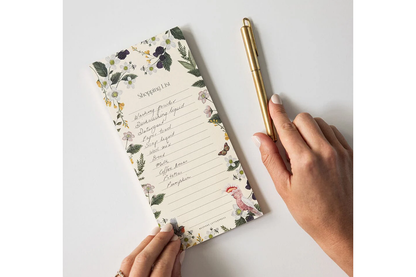 Shopping List
Washing powder
Dishwashing liquid
Detergent
Paper towel
Soap liquid
Bread
Milk
Coffee beans